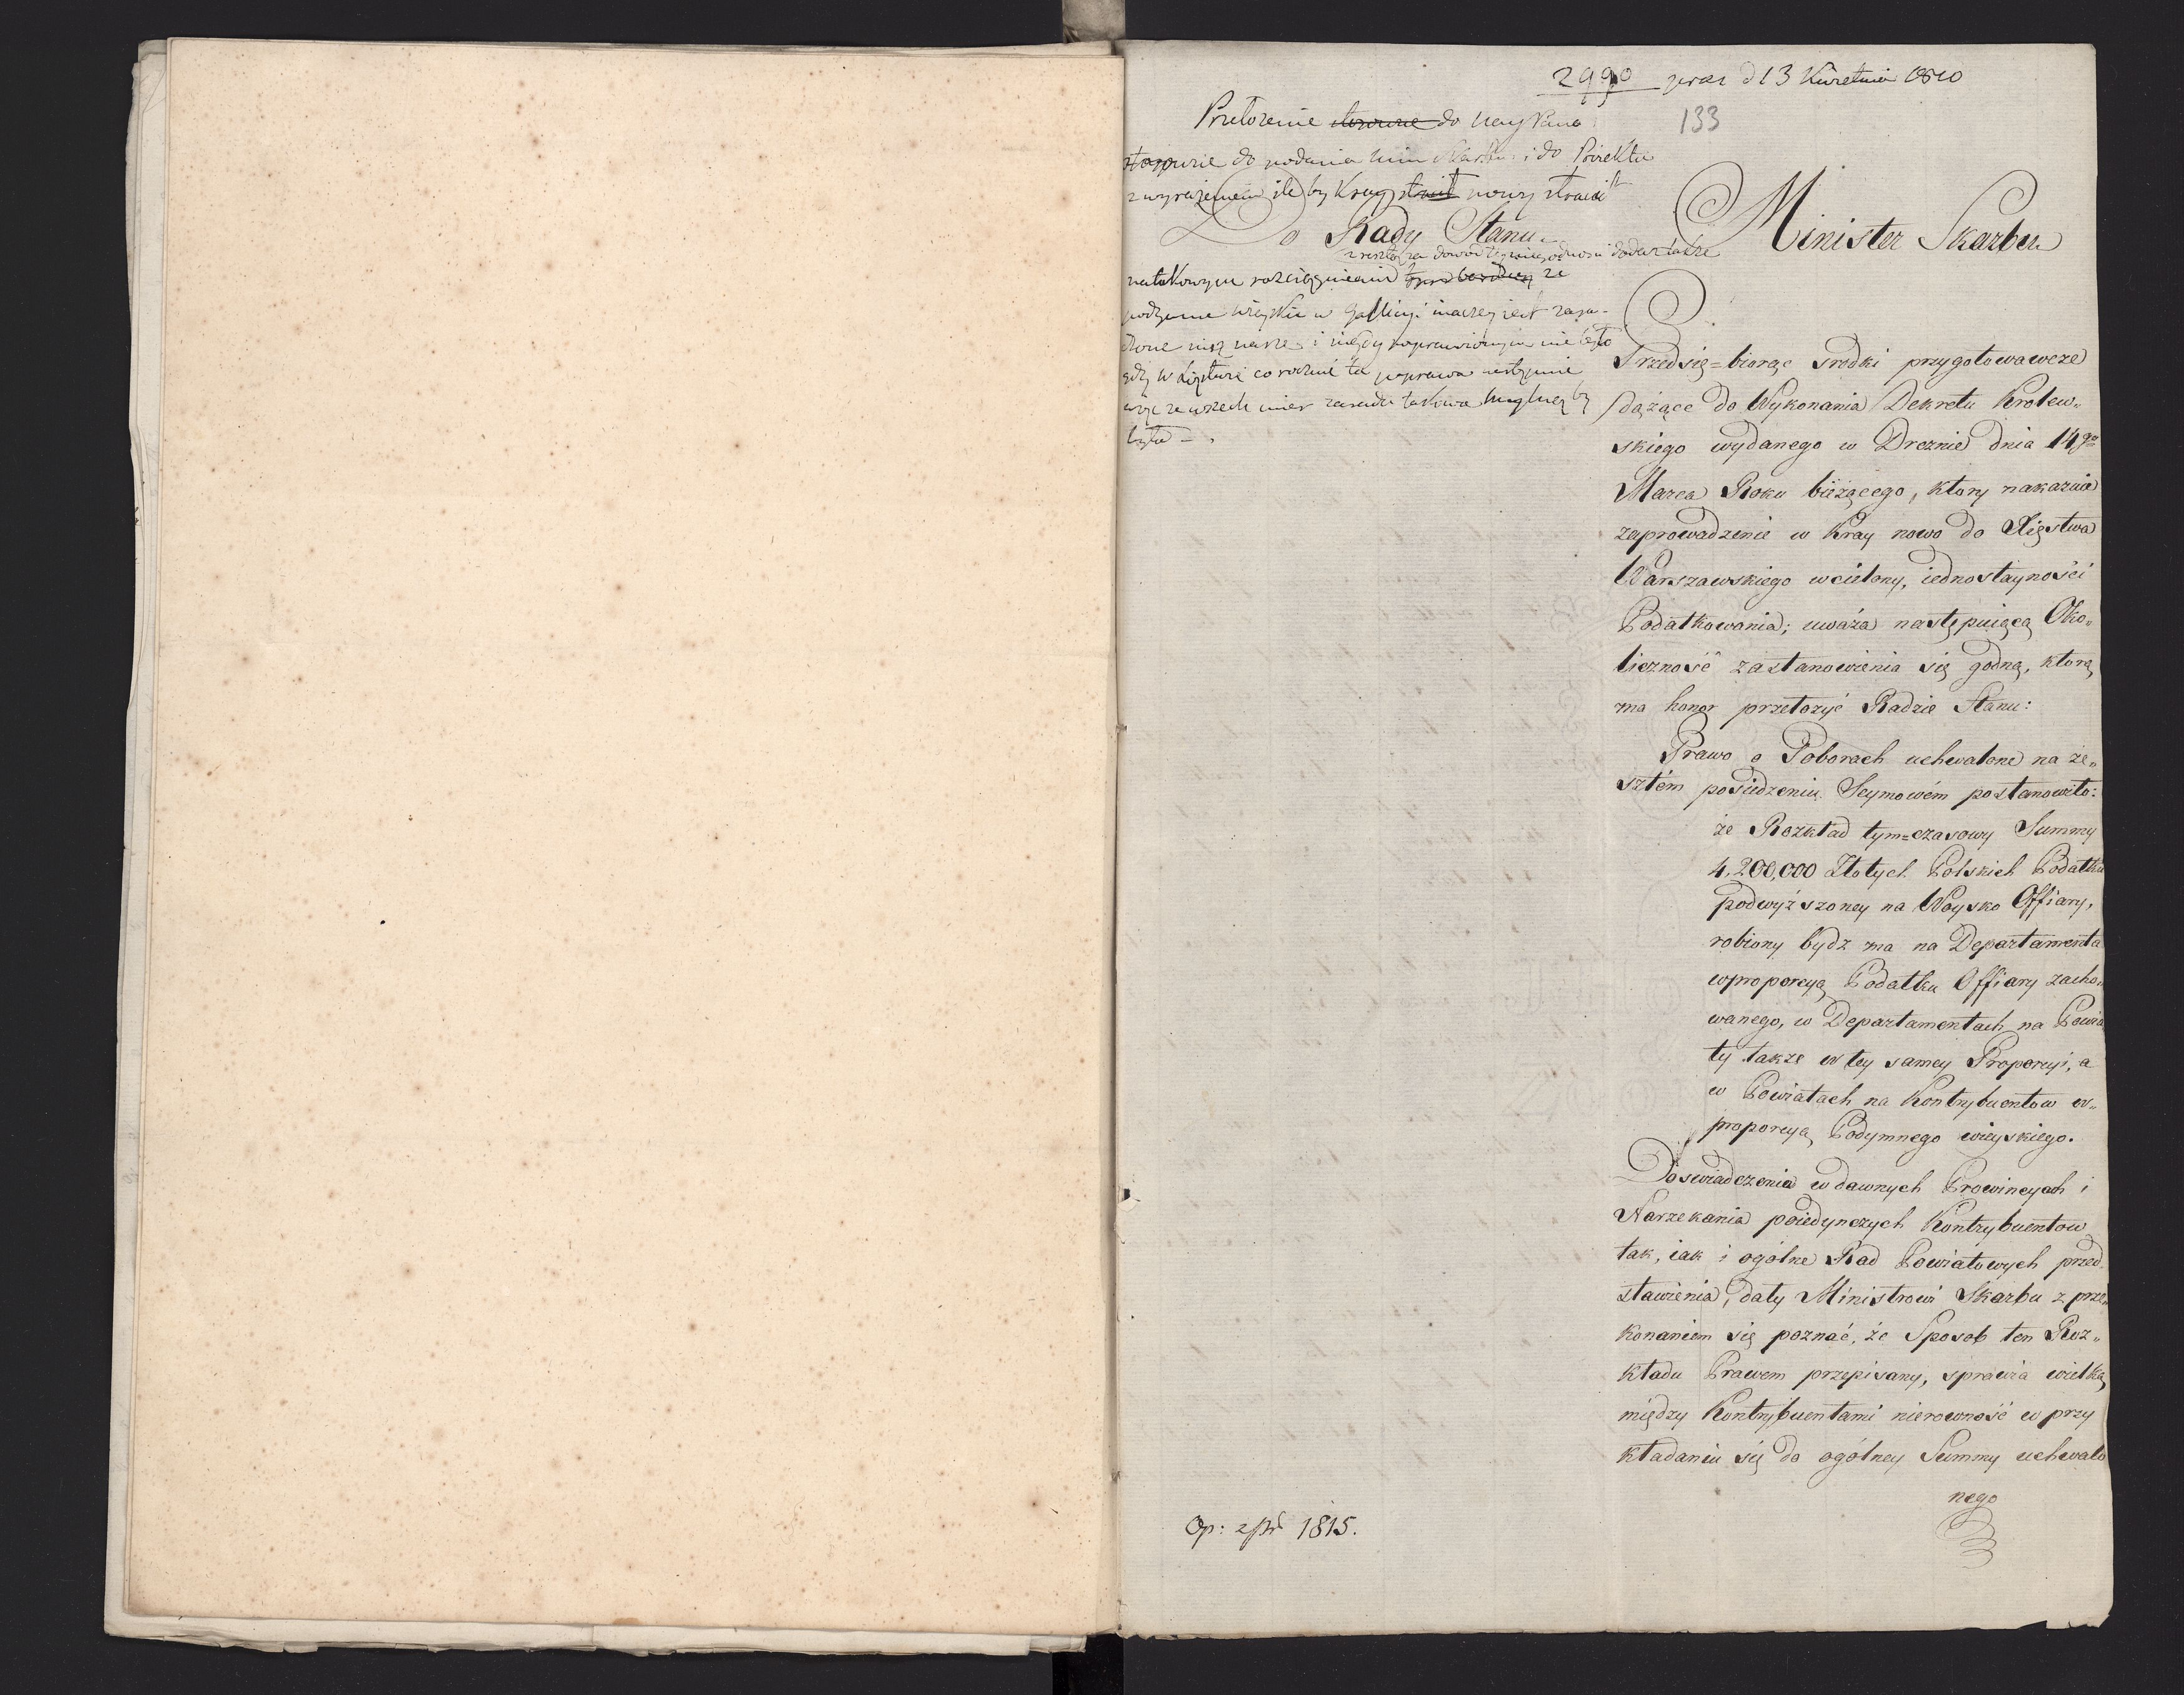 2990 praes d 13 Kwietnia 1810
133
Przełożenie stosowne do Nayj Pana
stosownie do podania Min Skarbu i do Proiektu
z wyrażeniem ile by Kray nowy stracił
Do Rady Stanu
Minister Skarbu
na takowym rościągnieniu że
podymne wieyskie w Gallicyi inaczey iest zasa-
dzone niż nasze i nigdy
gdy w co rocznie ta poprawa następuie
więc ze wszech miar zasada takowa by
była -.
Przedsię=biorąc srodki przygotowawcze
dążące do Wykonania Dekretu Krolew„
skiego wydanego w Dreznie dnia 14go
Marca Roku bieżącego, ktory nakazuie
zaprowadzenie w Kray nowo do Xięstwa
Warszawskiego wcielony, iednostayności
Podatkowania; uważa następuiącą Oko„
liczność zastanowienia się godną, ktorą
ma honor przełożyć Radzie Stanu:
Prawo o Poborach uchwalone na ze„
szłém posiedzeniu Seymowém postanowiło:
że Rozkład tym=czasowy Summy
4,200,000 Złotych Polskich Podatku
podwyższoney na Woysko Offiary,
robiony bydz ma na Departamenta
wproporcyą Podatku Offiary zacho„
wanego, w Departamentach na Powia
ty także w tey samey Proporcyi, a
w Powiatach na Kontrybuentow w„
proporcyą Podymnego wieyskiego.
Doswiadczenia w dawnych Prowincyach i
Narzekania poiedynczych Kontrybuentow
tak, iak i ogólne Rad Powiatowych przed
stawienia, dały Ministrowi Skarbu z prze„
konaniem się poznać, że Sposob ten Roz„
kładu Prawem przepisany, sprawia wielką
między Kontrybuentami nierowność w przy
kładaniu się do ogólney Summy uchwalo
nego
Op: 1815.